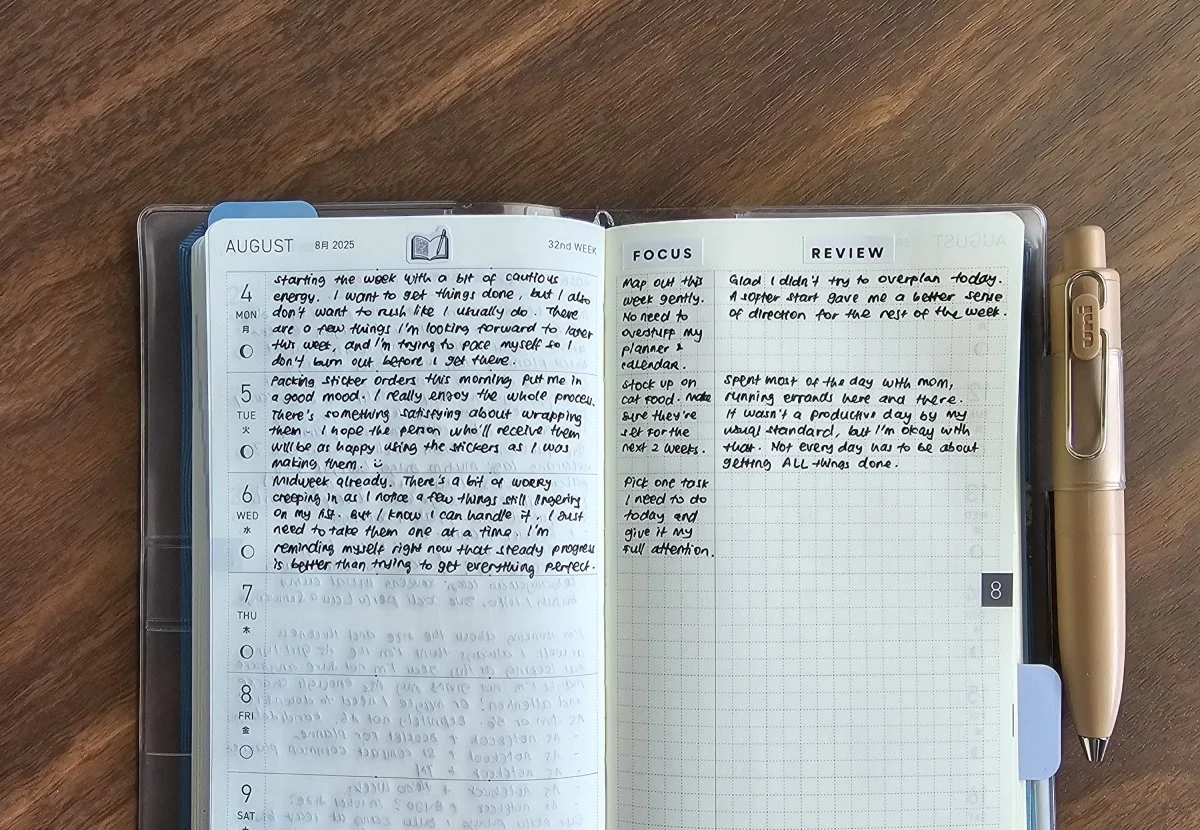 AUGUST 8月 2025 32nd WEEK
4
MON
月
starting the week with a bit of cautious
energy. I want to get things done, but I also
don't want to rush like I usually do. There
are a few things I'm looking forward to later
this week, and I'm trying to pace myself so I
don't burn out before I get there.
5
TUE
火
Packing sticker orders this morning put me in
a good mood. I really enjoy the whole process.
There's something satisfying about wrapping
them. I hope the person who'll receive them
will be as happy using the stickers as I was
making them.
6
WED
水
Midweek already. There's a bit of worry
creeping in as I notice a few things still lingering
on my list. But I know I can handle it. I just
need to take them one at a time. I'm
reminding myself right now that steady progress
is better than trying to get everything perfect.
7
THU
木
8
FRI
金
9
SAT
FOCUS
Map out this
week gently.
No need to
overstuff my
planner &
calendar.
Stock up on
cat food. Make
sure they're
set for the
next 2 weeks.
Pick one task
I need to do
today and
give it my
full attention.
REVIEW
Glad I didn't try to overplan today.
A softer start gave me a better sense
of direction for the rest of the week.
Spent most of the day with mom,
running errands here and there.
It wasn't a productive day by my
usual standard, but I'm okay with
that. Not every day has to be about
getting ALL things done.
8
uni